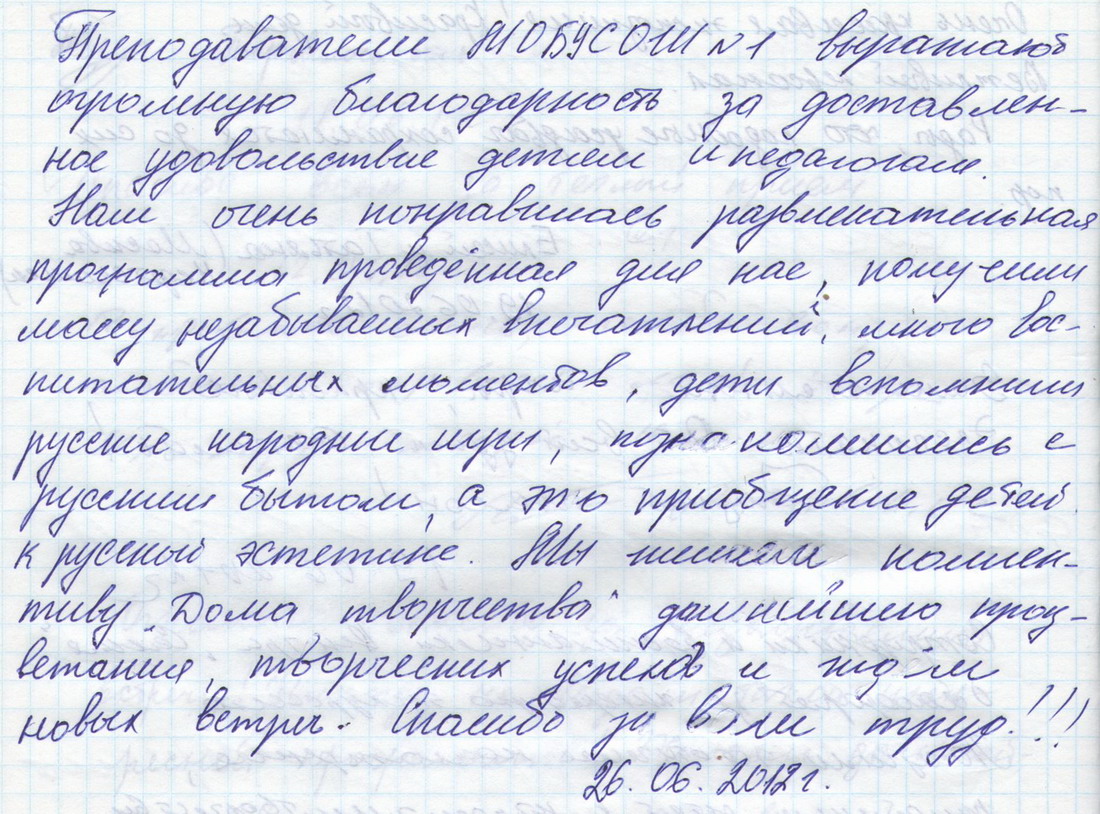 Преподаватели МОБУСОШ №1 выражают
огромную благодарность за доставлен-
ное удовольствие детям и педагогам.
Нам очень понравилась развлекательная
программа проведённая для нас, получили
массу незабываемых впечатлений, много вос-
питательных моментов, дети вспомнили
русские народные игры, познакомились с
русским бытом, а это приобщение детей
к русской эстетике. Мы желаем коллек-
тиву "Дома творчества" дальнейшего процветания
ветания, творческих успехов и ждём
новых встреч. Спасибо за ваш труд!!!
26.06.2012г.